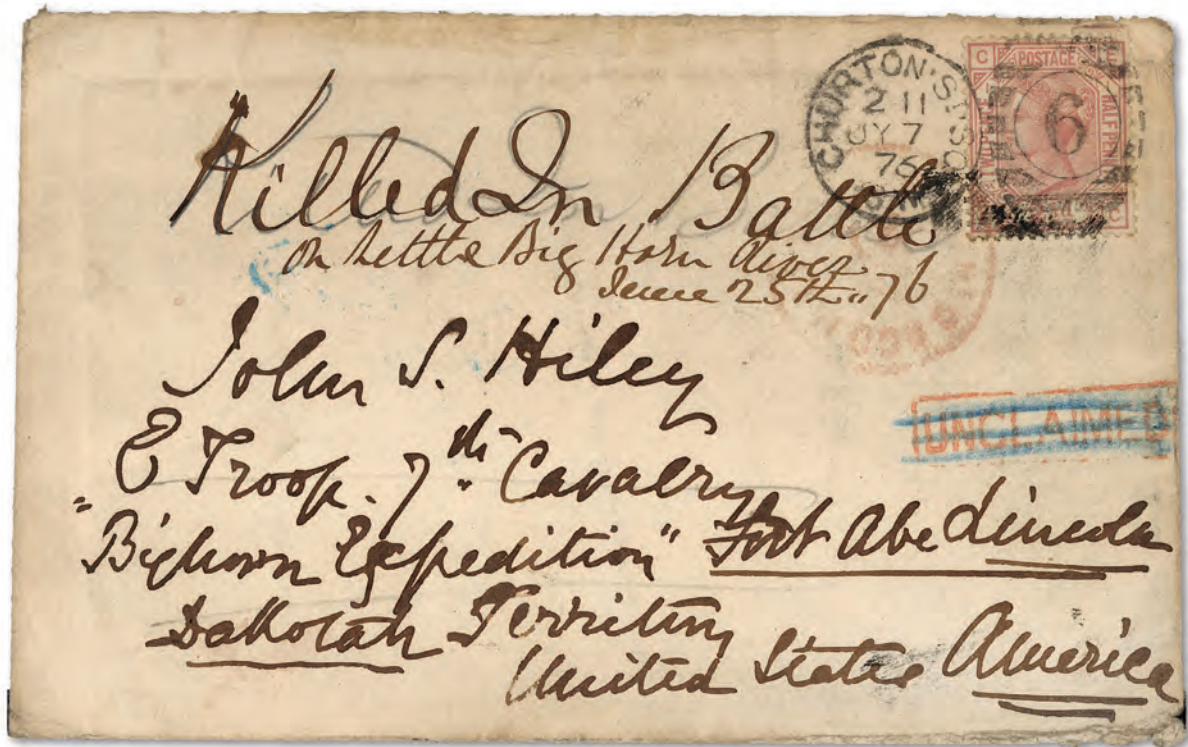 CHURTON'S ST. S.O.
2 11
JY 7
76
C POSTAGE
HALFPENNY
6
C
Killed In Battle
on Little Big Horn River
June 25th " 76
John S. Hiley
UNCLAIMED
E Troop. 7th Cavalry
"Bighorn Expedition" Fort Abe Lincoln
Dakotah Territory
United States America